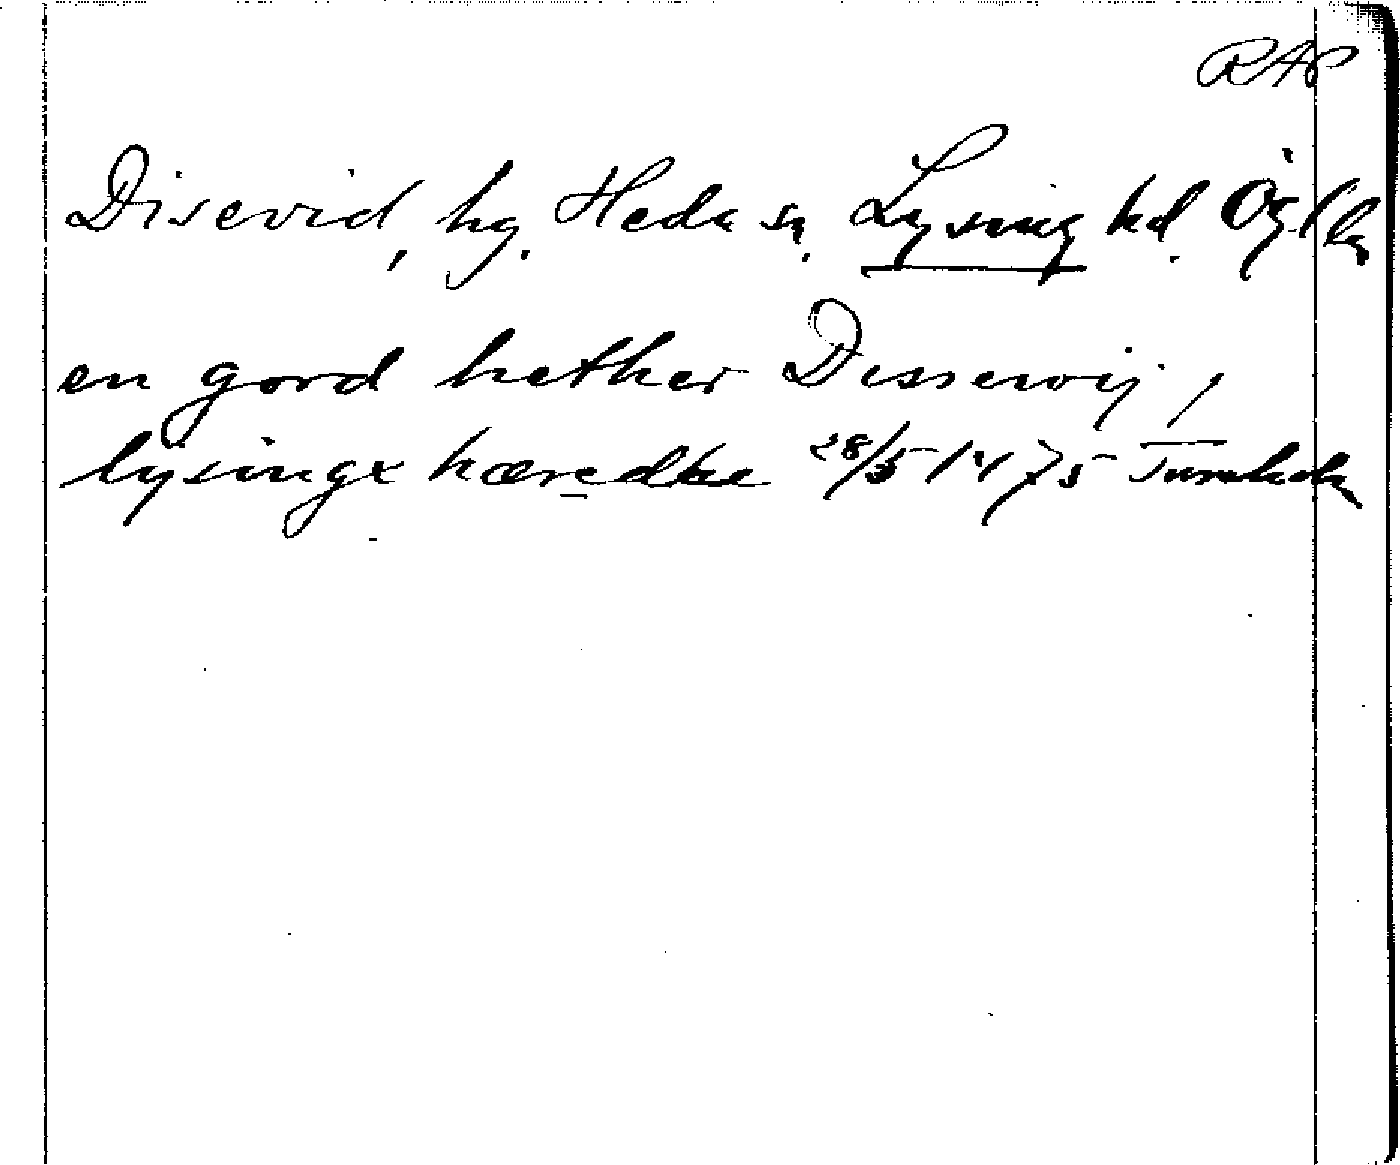 RAP
Disevid, hg. Heda sn. Lysing hd. Ögl
en gord hether Disserwij i
lysingx hæredhe 28/5 1475